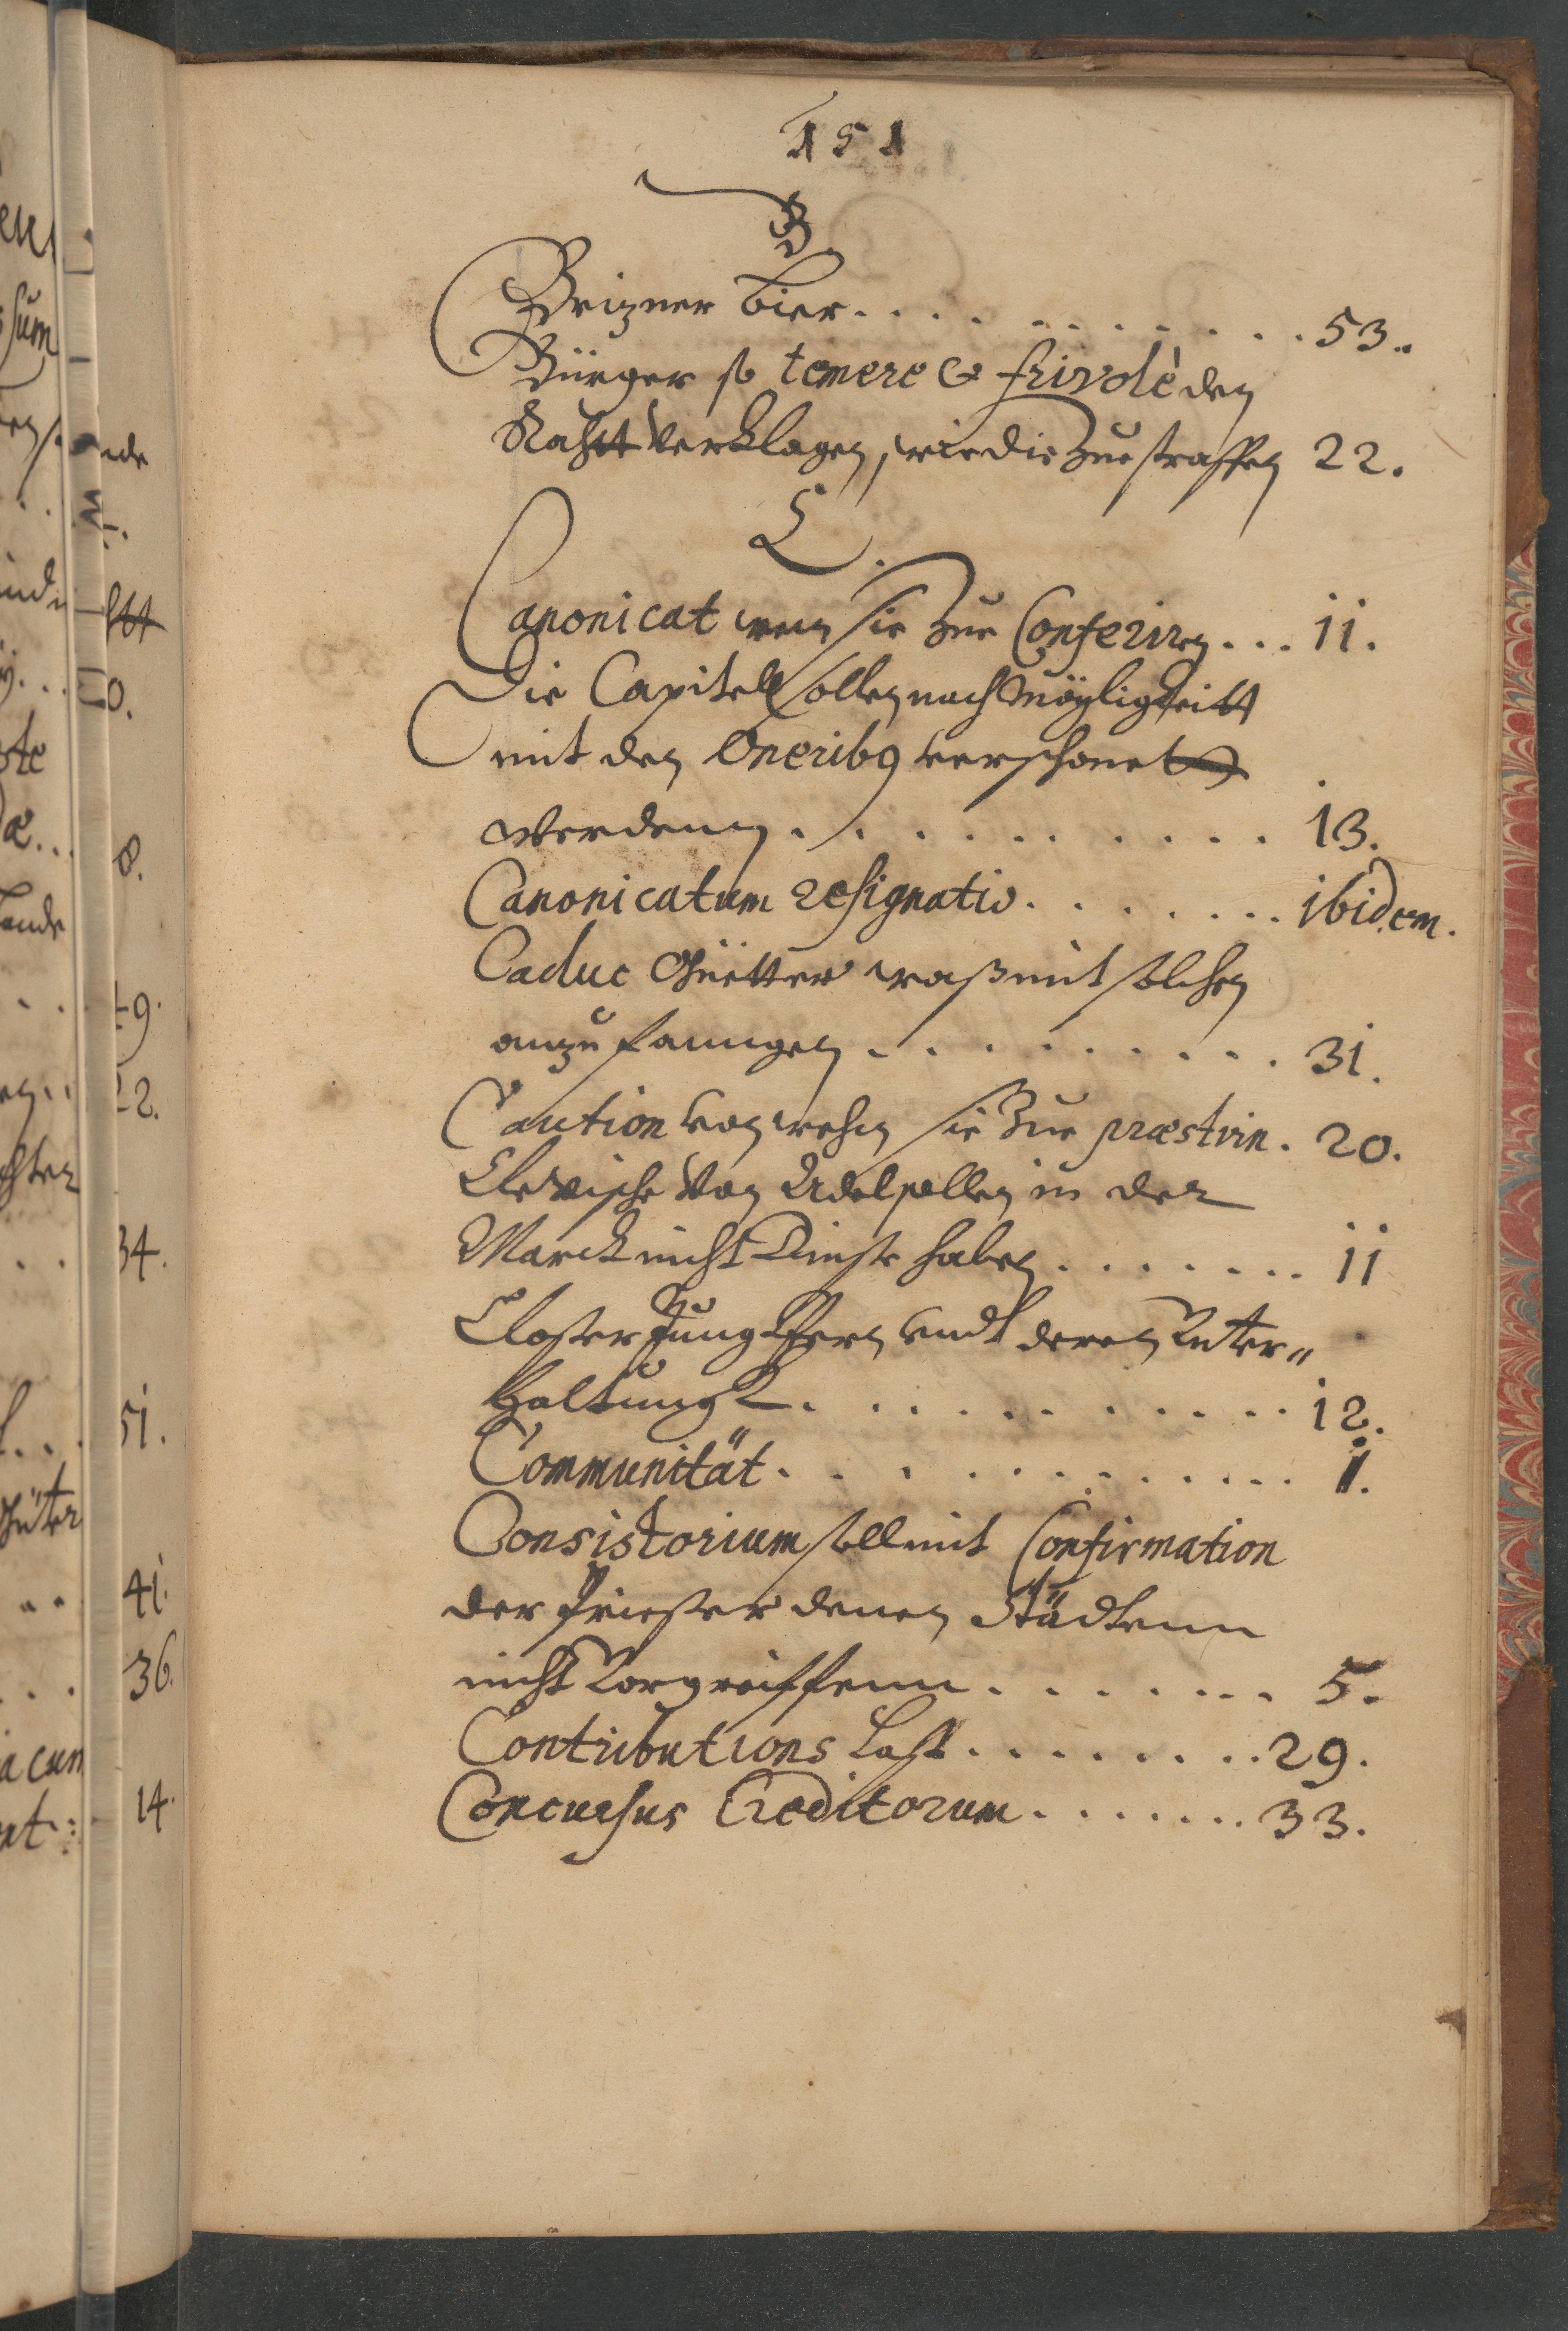 151
B.
Brizner Bier. . . . . . . . . . . . 53.
Bürger so temere & frivolè den
Rahtt verklagen, wie die Zue straffen 22.
C.
Canonicat wem sie Zue Conferiren . . . 11.
Die Capitell sollen nach Mögligkeitt
mit den Oneribg verschonet
werdenn . . . . . . . . . . 13.
Canonicatum resignatio . . . . . . . . ibidem.
Caduc Guetter waß mit solchen
anzufanngen . . . . . . . . . . 31.
Caution von wehm sie Zue præstirn . 20.
Clevische von Adel sollen in der
Marck nicht Dinste haben . . . . . . . . 11
Closter Jungkfern undt deren Unter-
haltungk . . . . . . . . . . . 12.
Communität . . . . . . . . . . . . . 1.
Consistorium soll mit Confirmation
der Priester denen Städtenn
nicht Vorgreiffenn . . . . . . . . 5.
Contributions Last . . . . . . . . . 29.
Concursus Creditorum . . . . . . . . 33.